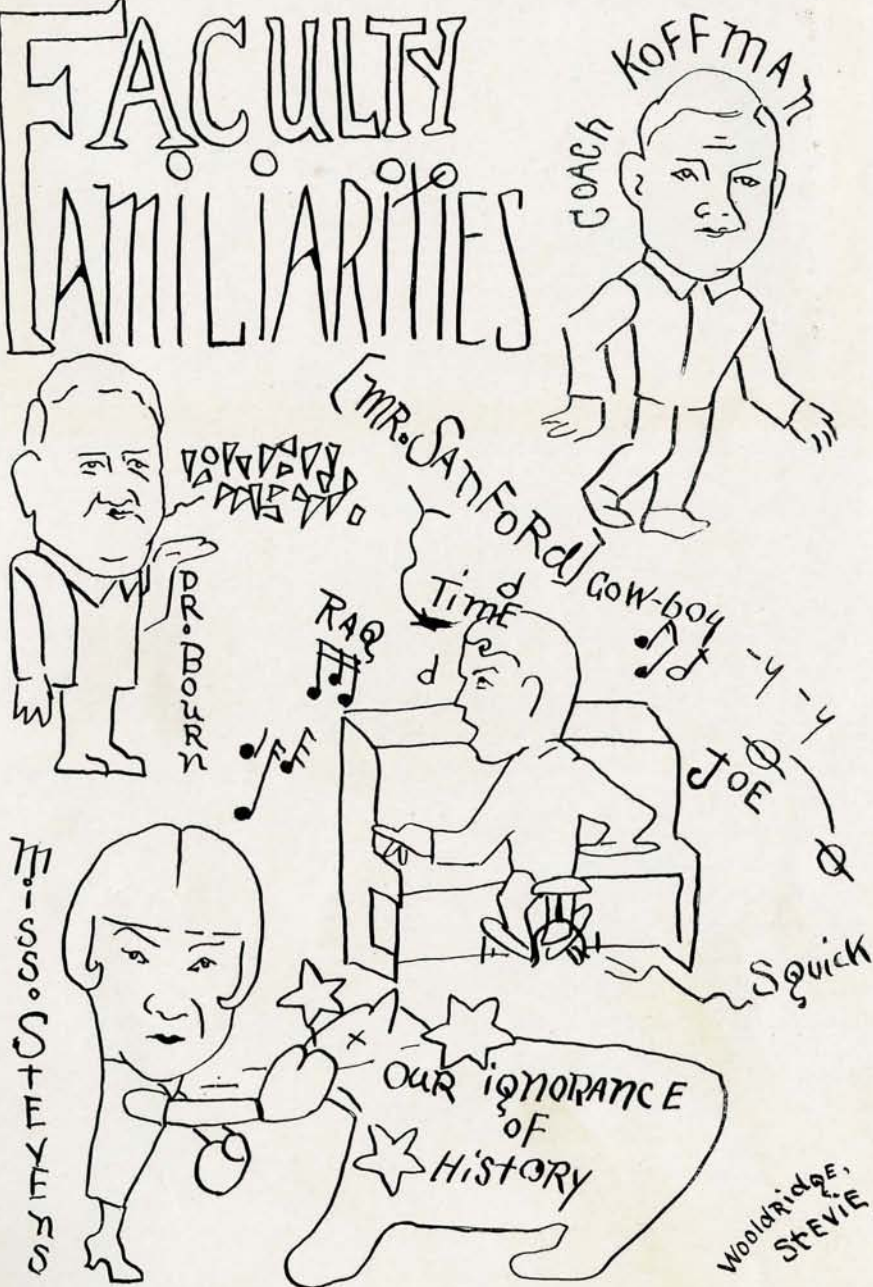 FACULTY
FAMILIARITIES
COACH KOFFMAN
DR. BOURN
[MR. SANFORD]
RAG
Time
COW-boy
-y -y
JOE
Squick
MISS. STEVENS
OUR IGNORANCE
OF
HISTORY
WOOLDRIDGE,
STEVIE